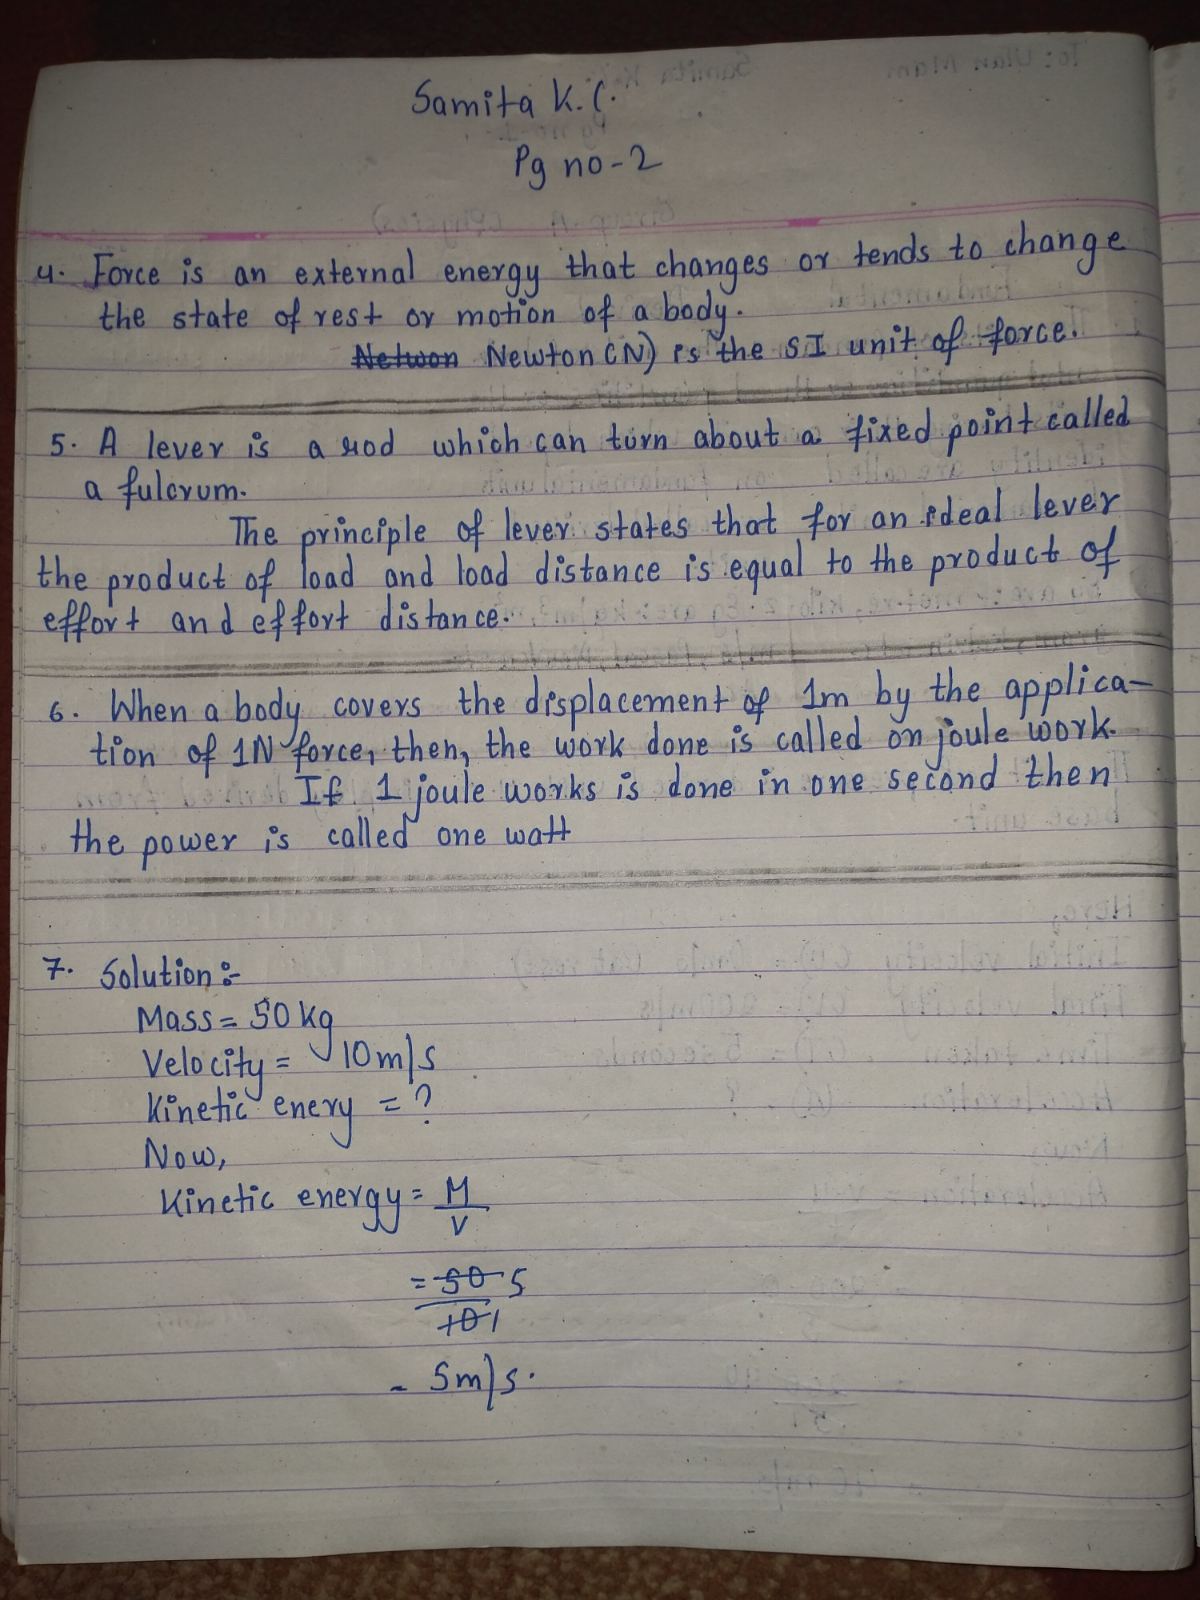 Samita K.C.
Pg no-2
4. Force is an external energy that changes or tends to change
the state of rest or motion of a body.
Netwon Newton (N) is the SI unit of force.
5. A lever is a rod which can turn about a fixed point called
a fulcrum.
The principle of lever states that for an ideal lever
the product of load and load distance is equal to the product of
effort and effort distance.
6. When a body covers the displacement of 1m by the applica-
tion of 1N force, then, the work done is called on joule work.
If 1 joule works is done in one second then
the power is called one watt
7. Solution:-
Mass = 50 kg
Velocity = 10m/s
Kinetic enery = ?
Now,
Kinetic energy = M
V
= 50 5
10 1
= 5m/s.